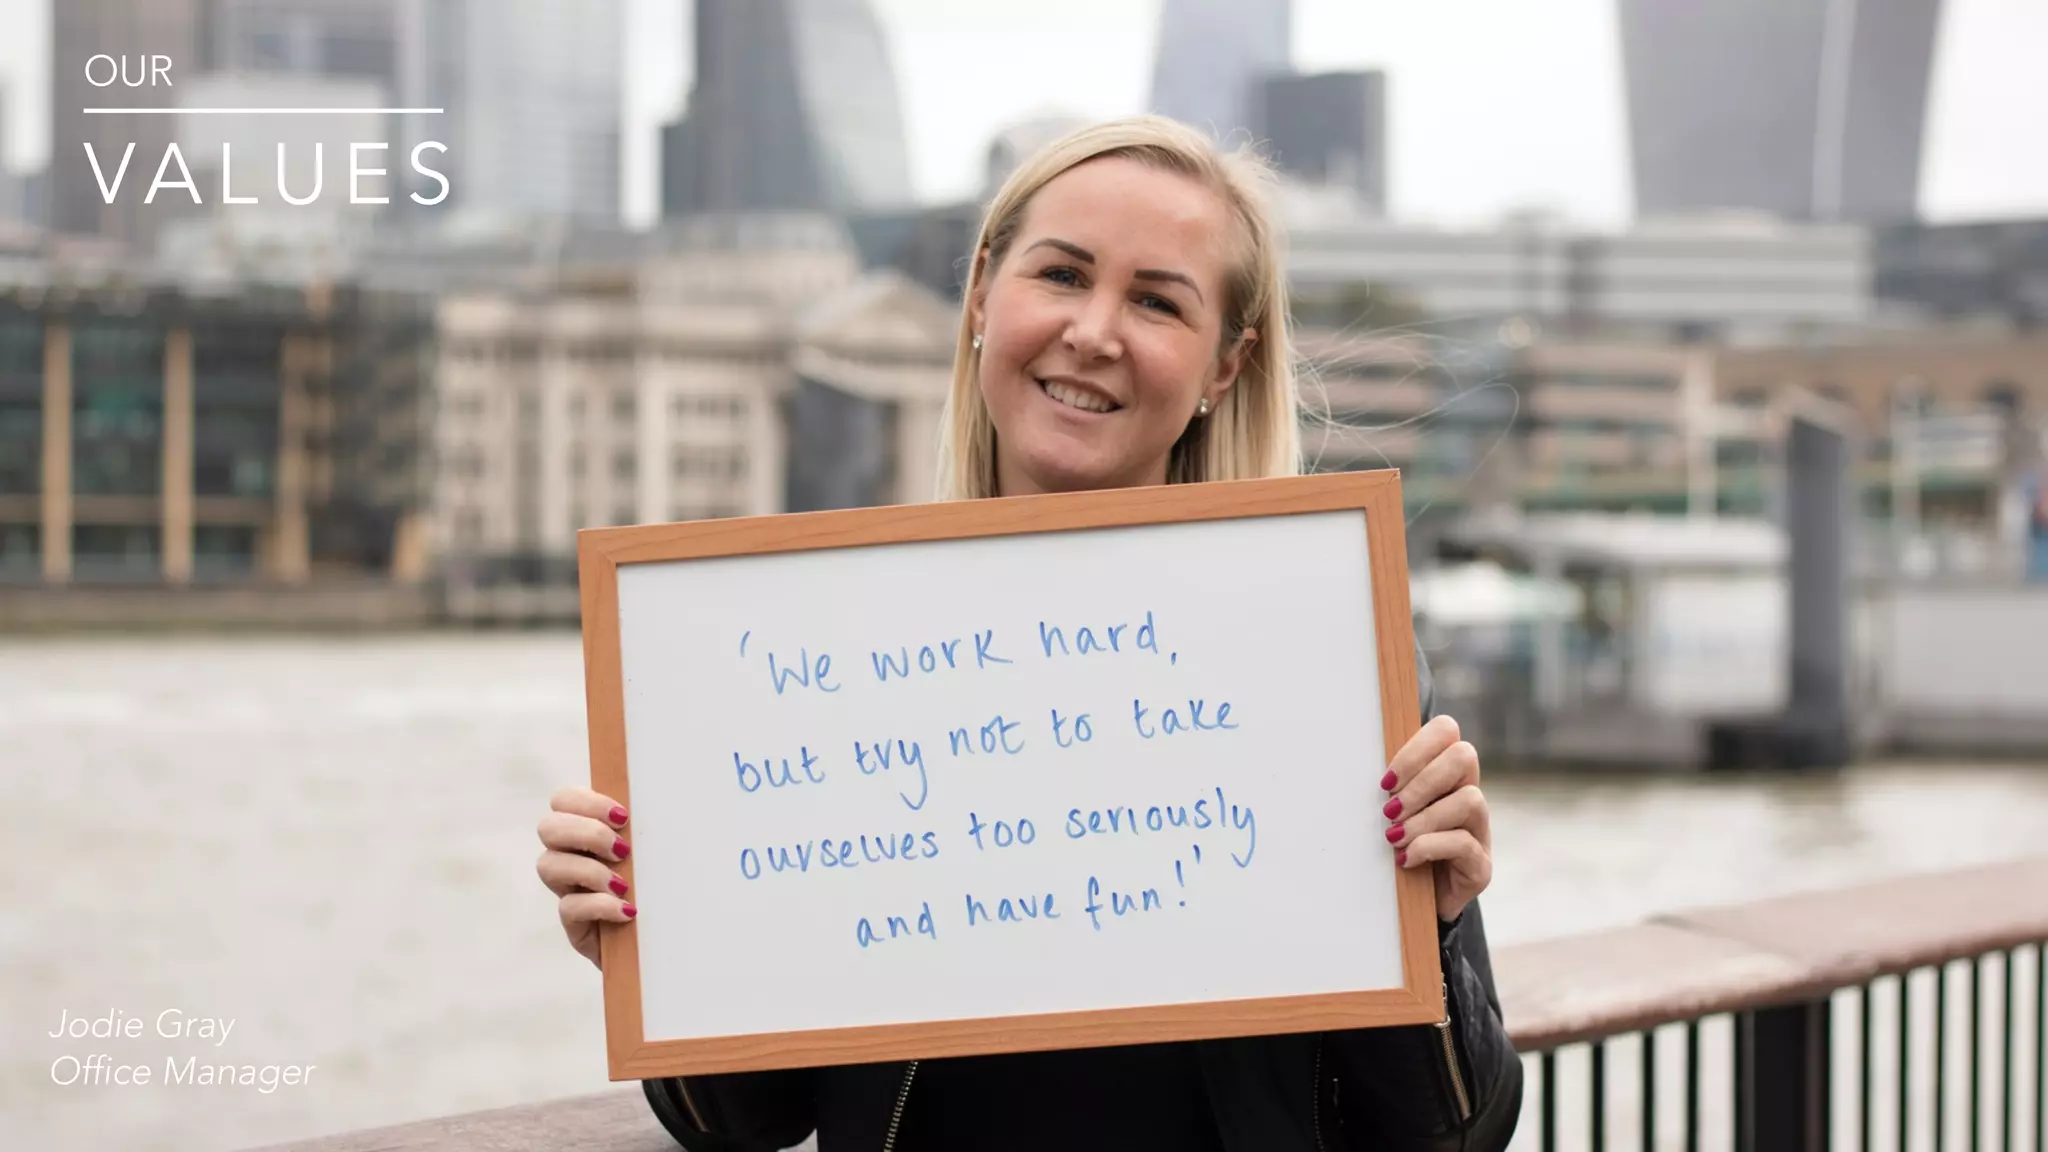 OUR
VALUES
'We work hard,
but try not to take
ourselves too seriously
and have fun!'
Jodie Gray
Office Manager